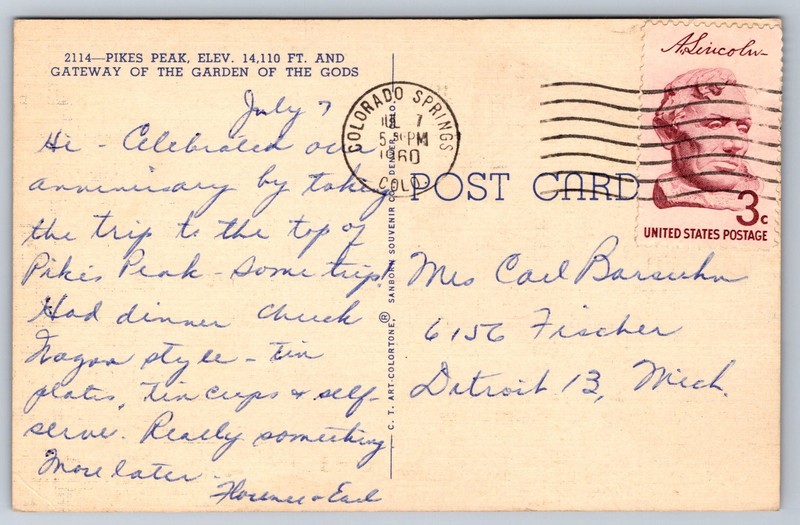 2114—PIKES PEAK, ELEV. 14,110 FT. AND
GATEWAY OF THE GARDEN OF THE GODS
July 7
Hi - Celebrated our
anniversary by taking
the trip to the top of
Pikes Peak - Some trip.
Had dinner Chuck
Wagon style - tin
plates, tin cups & self-
serve. Really something
More later -
Florence & Earl
C. T. ART-COLORTONE,® SANBORN SOUVENIR CO., DENVER, COLO.
COLORADO SPRINGS
JUL 7
5 PM
1960
COLO.
POST CARD
A. Lincoln
3c
UNITED STATES POSTAGE
Mrs Carl
6156 Fischer
Detroit 13, Mich.